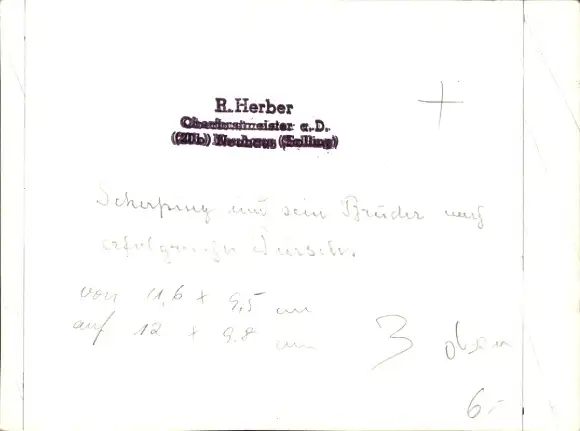 R. Herber
Oberforstmeister a.D.
(20b) Neuhaus (Solling)
Scherping und sein Bruder nach
erfolgreicher Pirsch.
von 11,6 x 9,5 cm
auf 12 x 9.8 cm
3 oben
6.-